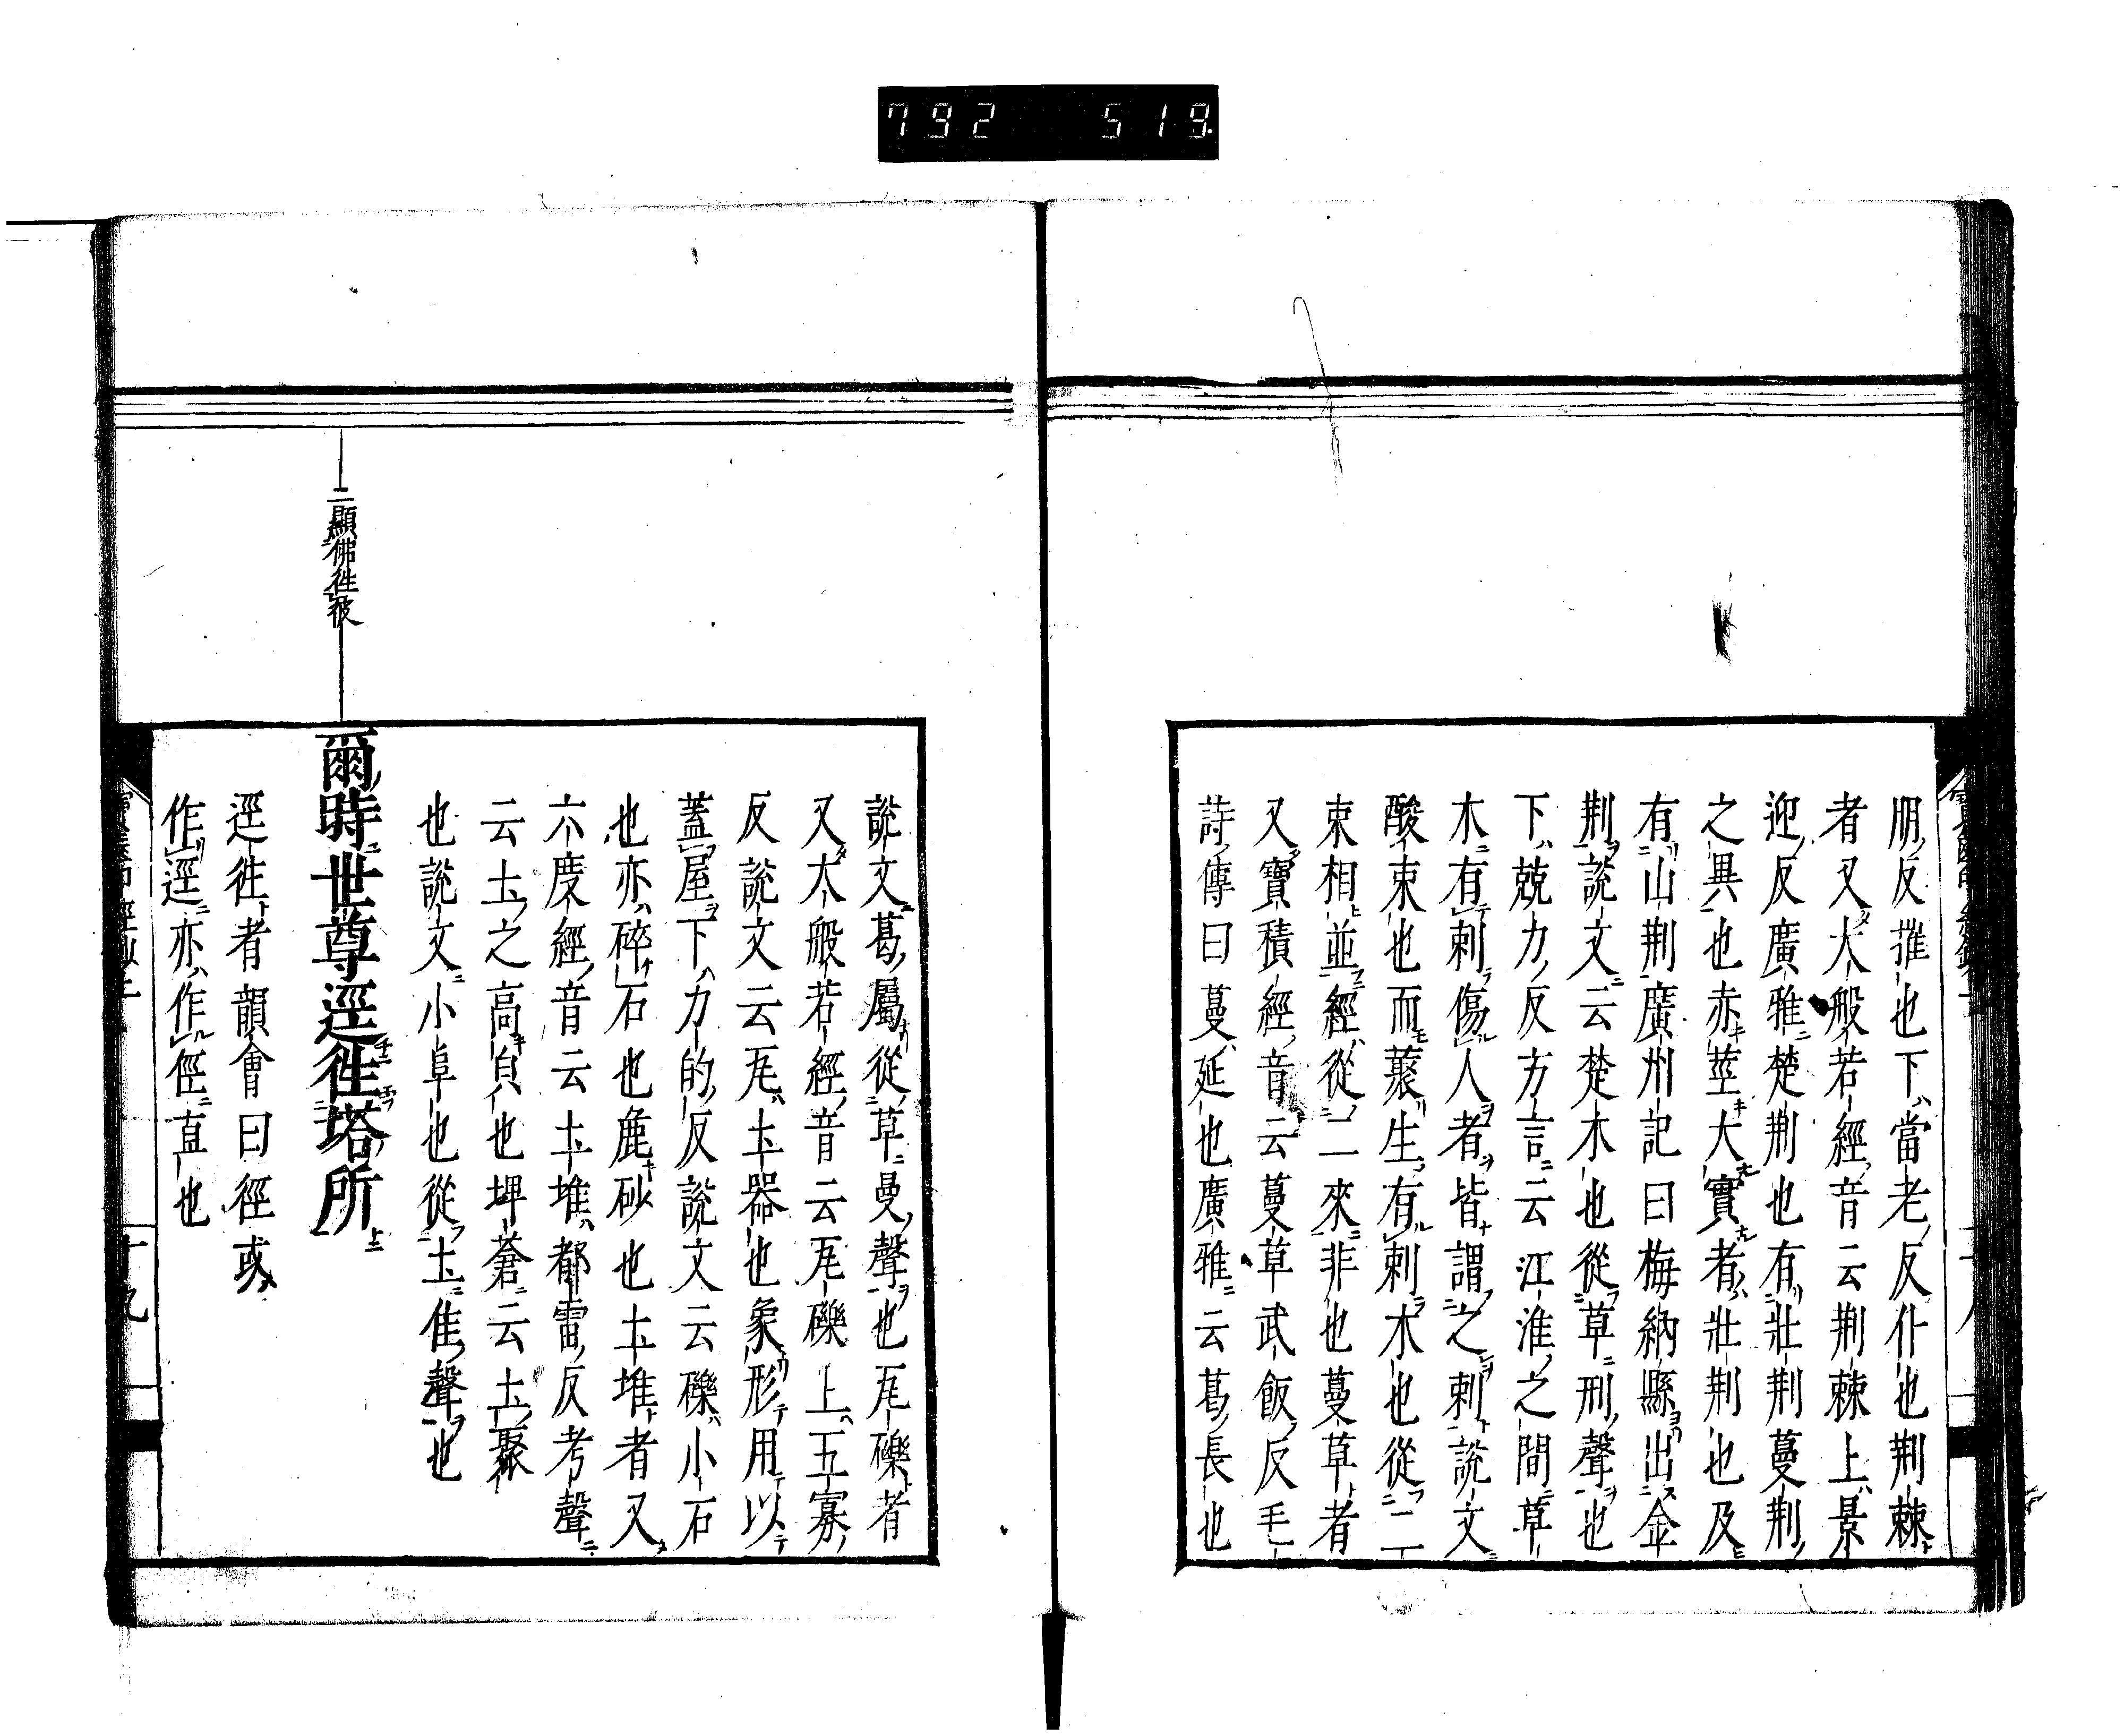 792 519
朋反摧也下當老反仆也荆棘
者又大般若經音云荆棘上景
迎反廣雅楚荆也有壯荆蔓荆
之異也赤莖大實者壯荆也及
有山荆廣州記曰梅納縣出金
荆說文云楚木也從草刑聲也
下兢力反方言云江淮之間草
木有刺傷人者皆謂之刺說文
酸束也而藂生有刺木也從二
束相並經從二來非也蔓草者
又寶積經音云蔓草武飯反毛
詩傳曰蔓延也廣雅云葛長也
說文葛屬從草曼聲也瓦礫者
又大般若經音云瓦礫上五寡
反說文云瓦土器也象形用以
蓋屋下力的反說文云礫小石
也亦碎石也麁砂也土堆者又
六度經音云土堆都雷反考聲
云土之高皃也埤蒼云土聚
也說文小阜也從土隹聲也
二顯佛徃彼
爾時世尊逕徃塔所
逕徃者韻會曰徑或
作逕亦作俓直也
十九